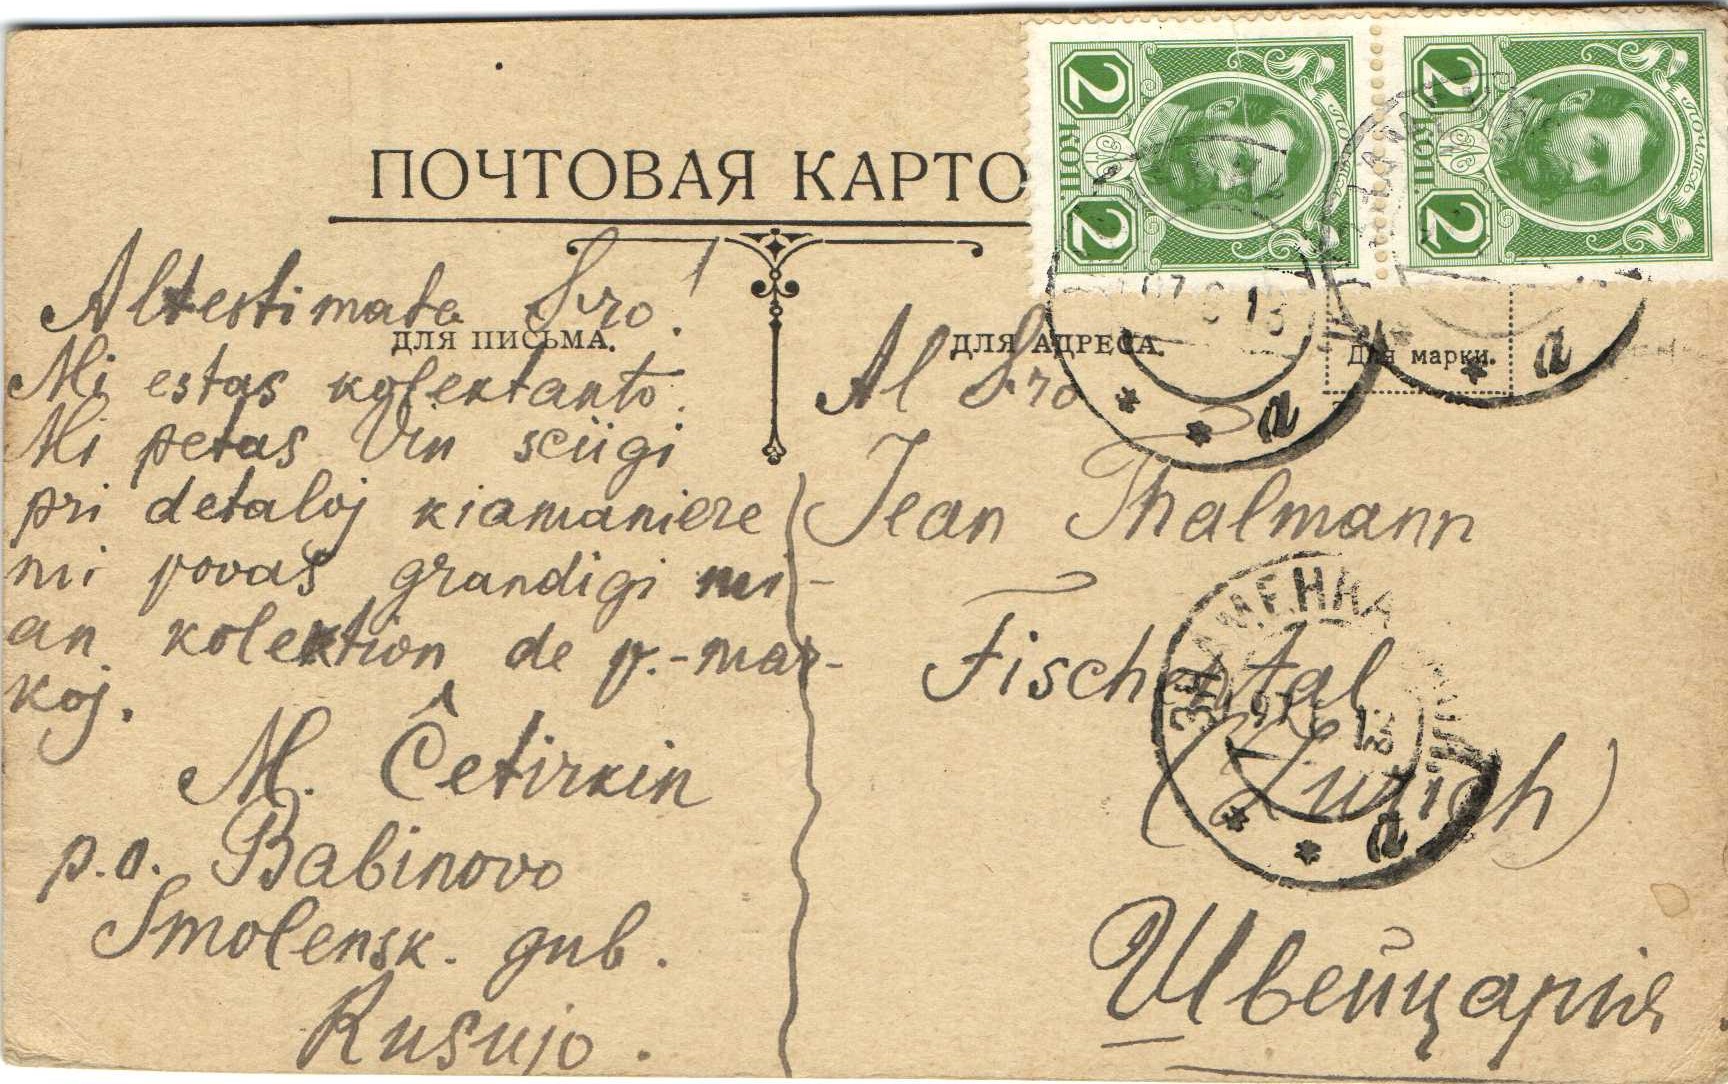 ПОЧТОВАЯ КАРТО
2 КОП. 2
2 КОП. 2
ДЛЯ ПИСЬМА.
ДЛЯ АДРЕСА.
Для марки.
Altestimata S-ro!
Mi estas kolektanto.
Mi petas Vin sciigi
pri detaloj kiamaniere
mi povas grandigi mi-
an kolektion de p.-mar-
koj.
M. Ĉetirkin
p.o. Babinovo
Smolensk. gub.
Rusujo.
Al S-ro
Jean Thalmann
Fischental
(Zürich)
Швейцарія
ЗНАМЕНКА
a
a
a